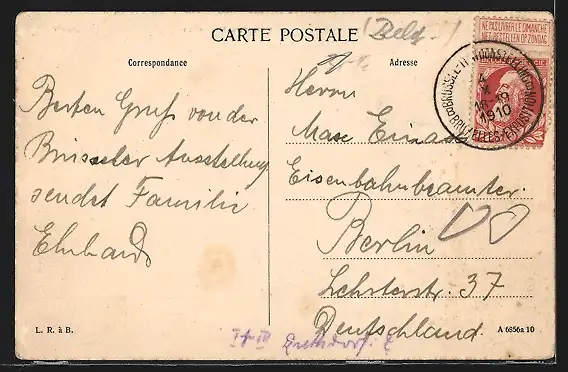 CARTE POSTALE
(Belg.)
Correspondance
Adresse
NE PAS LIVRER LE DIMANCHE
NIET BESTELLEN OP ZONDAG
1910
Besten Gruß von der
Brüsseler Ausstellung
sendet Familie
Ehrhardt
Herrn
Max
Eisenbahnbeamter.
Berlin
Lehrterstr. 37
Deutschland.
L. R. à B.
A 6856a 10